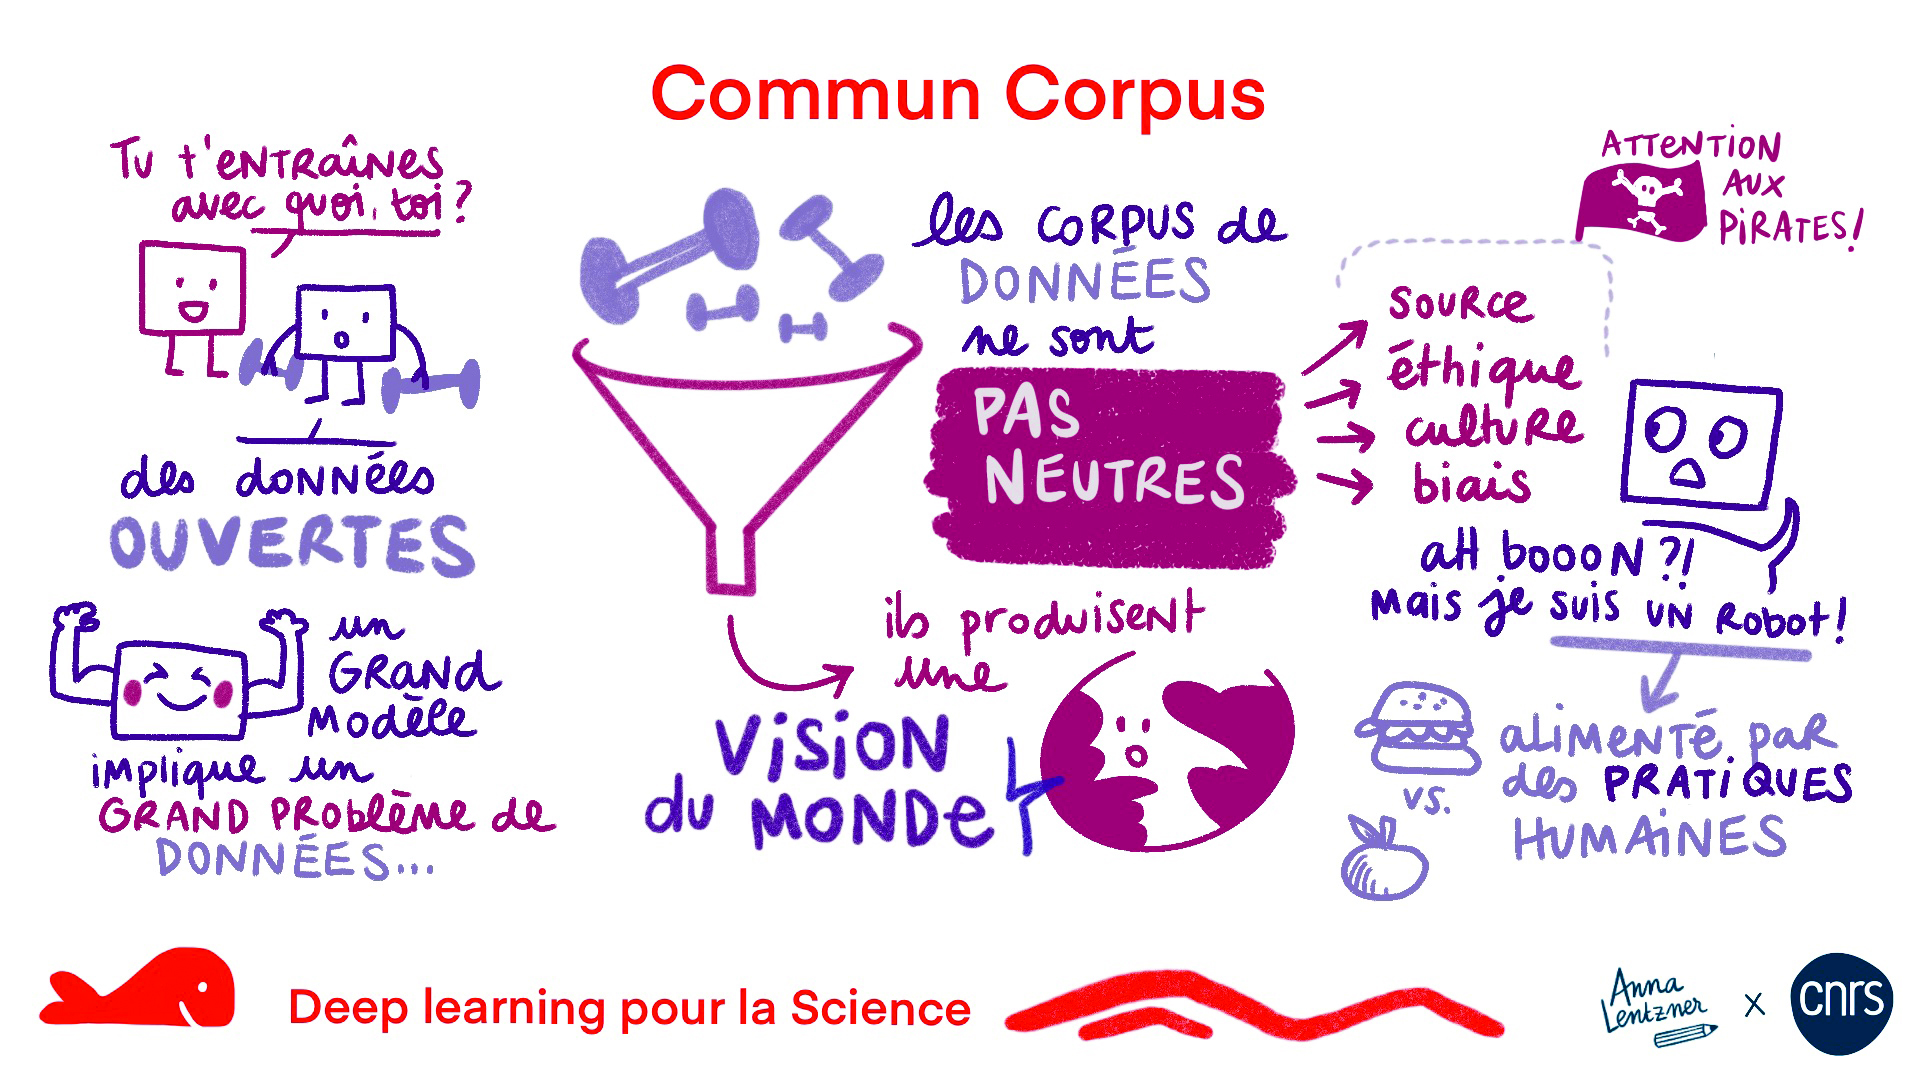 Commun Corpus
Tu t'entraînes
avec quoi, toi ?
des données
OUVERTES
un
GRAND
Modèle
implique un
GRAND PRoblème de
DONNÉES...
les CORPUS de
DONNÉES
ne sont
PAS
NEUTRES
ils produisent
une
VISION
du MONDE
ATTENTION
AUX
PIRATES!
source
éthique
culture
biais
aH boooN ?!
Mais je suis UN Robot!
aLiMENTÉ par
des PRATIQUES
HUMAINES
vs.
Deep learning pour la Science
Anna
Lentzner
x
cnrs